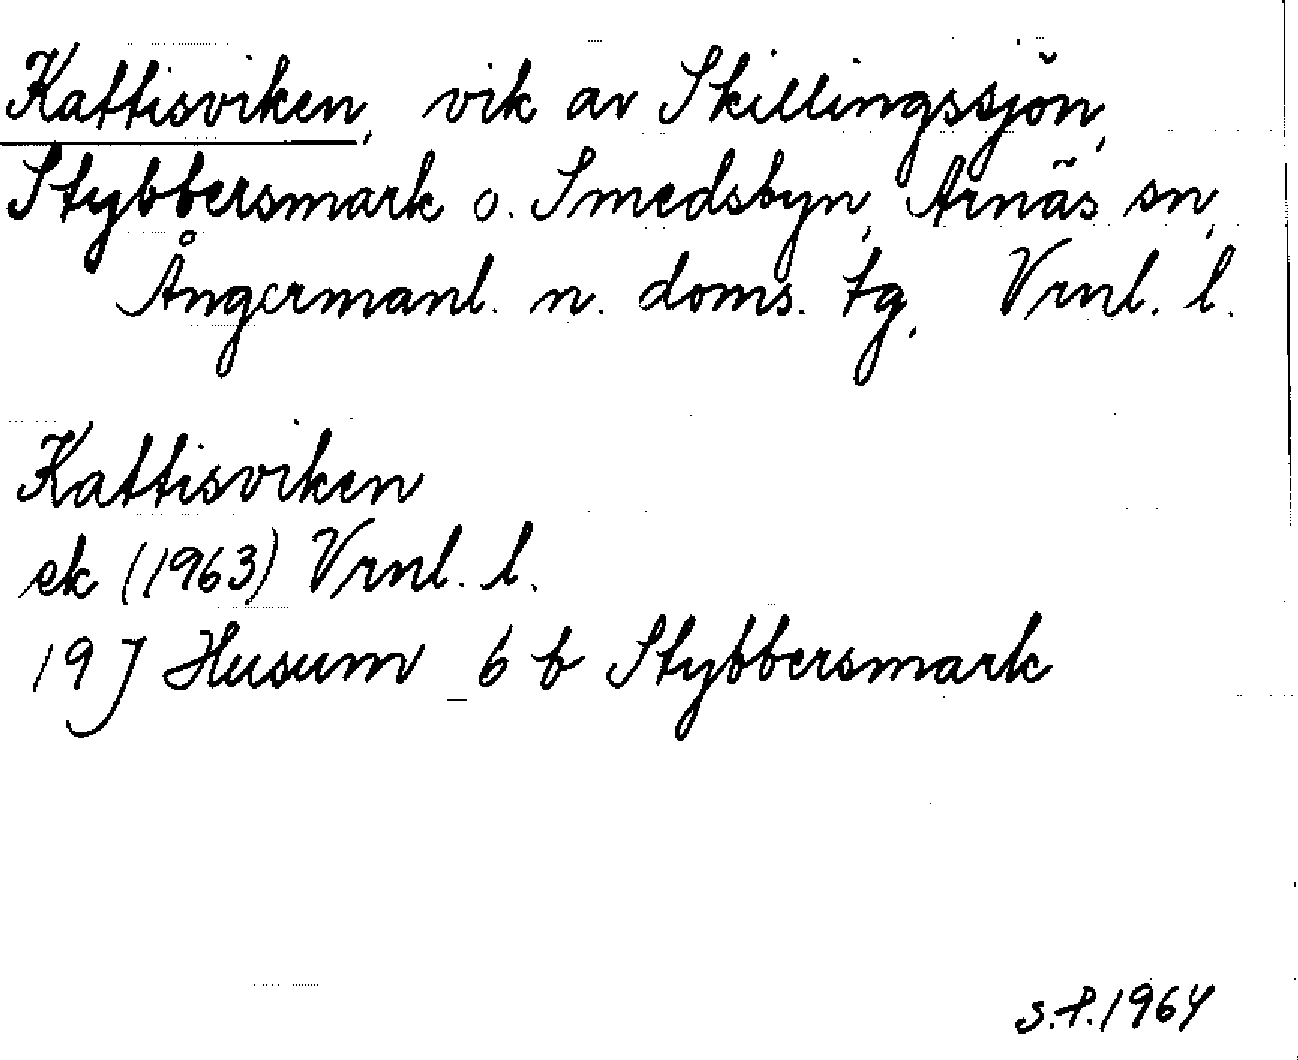 Kattisviken, vik av Skillingssjön,
Stybbersmark o. Smedsbyn, Arnäs sn,
Ångermanl. n. doms. tg, Vrnl. l.
Kattisviken
ek (1963) Vrnl. l.
19 J Husum 6 b Stybbersmark
S.P. 1964